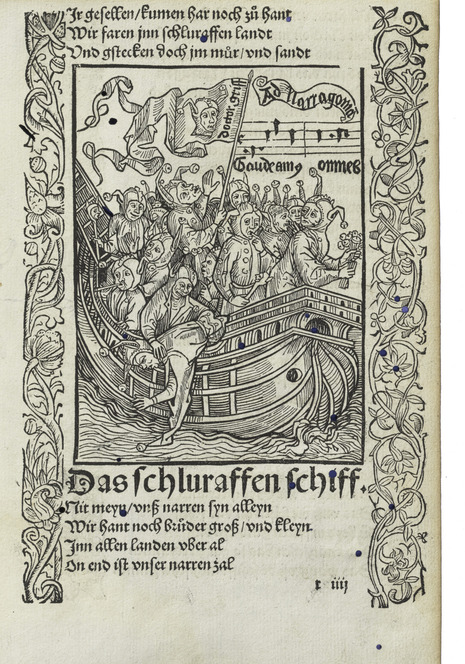 Ir gesellen/kumen har noch zů hant
Wir faren jnn schluraffen landt
Vnd gstecken doch jm můr/vnd sandt
doctor griff
Ad Narragoniã
Gaudeamꝰ omnes
Das schluraffen schiff.
Nit meyn/vnß narren syn alleyn
Wir hant noch brüder groß/vnd kleyn
Inn allen landen vber al
On end ist vnser narren zal
x iiij